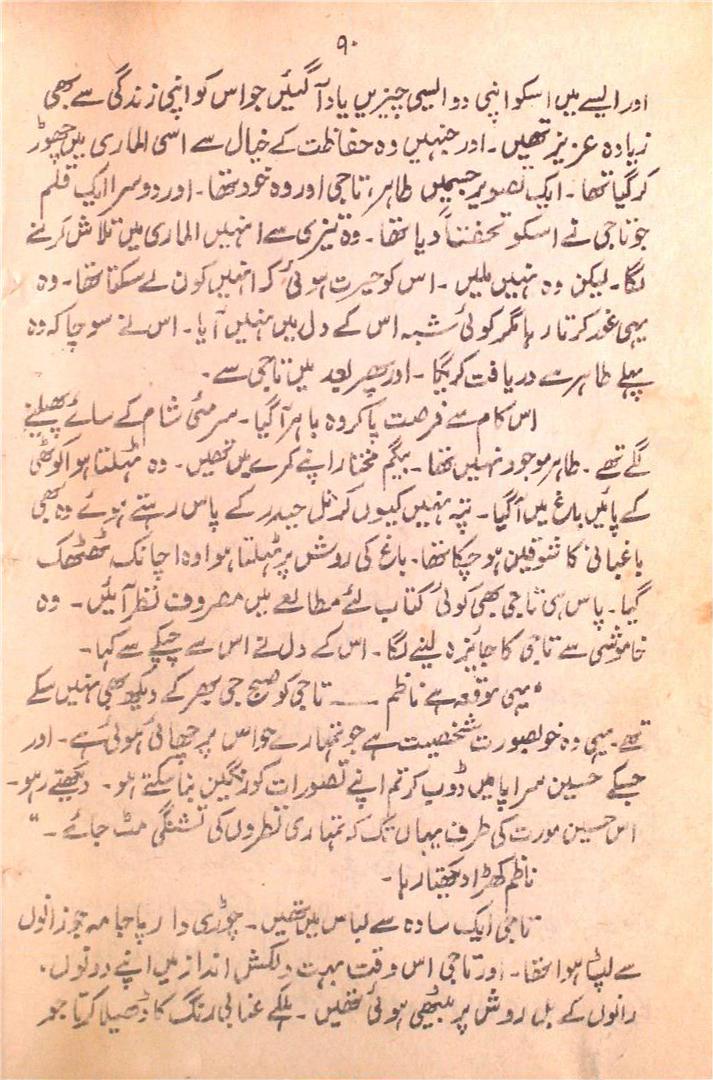 ۹۰
اور ایسے میں اسکو اپنی دو ایسی چیزیں یاد آگئیں جو اس کو اپنی زندگی سے بھی
زیادہ عزیز تھیں ۔ اور جنہیں وہ حفاظت کے خیال سے اسی الماری میں چھوڑ
کر گیا تھا ۔ ایک تصویر جسمیں طاہر، تاجی اور وہ خود تھا ۔ اور دوسرا ایک قلم
جو تاجی نے اسکو تحفتاً دیا تھا ۔ وہ تیزی سے انہیں الماری میں تلاش کرنے
لگا ۔ لیکن وہ نہیں ملیں ۔ اس کو حیرت ہوئی کہ انہیں کون لے سکتا تھا ۔ وہ
یہی غور کرتا رہا مگر کوئی شبہ اس کے دل میں نہیں آیا ۔ اس نے سوچا کہ وہ
پہلے طاہر سے دریافت کریگا ۔ اور پھر بعد میں تاجی سے ۔
اس کام سے فرصت پا کر وہ باہر آگیا ۔ سرمئی شام کے سائے پھیلنے
لگے تھے ۔ طاہر موجود نہیں تھا ۔ بیگم مختار اپنے کمرے میں تھیں ۔ وہ ٹہلتا ہوا کوٹھی
کے پائیں باغ میں آگیا ۔ پتہ نہیں کیوں کرنل حیدر کے پاس رہتے ہوئے وہ بھی
باغبانی کا شوقین ہو چکا تھا ۔ باغ کی روش پر ٹہلتا ہوا وہ اچانک ٹھٹھک
گیا ۔ پاس ہی تاجی بھی کوئی کتاب لئے مطالعے میں مصروف نظر آئیں ۔ وہ
خاموشی سے تاجی کا جائیزہ لینے لگا ۔ اس کے دل نے اس سے چپکے سے کہا ۔
"یہی موقعہ ہے ناظم ــــ تاجی کو صبح جی بھر کے دیکھ بھی نہیں سکے
تھے ۔ یہی وہ خوبصورت شخصیت ہے جو تمہارے حواس پر چھائی ہوئی ہے ۔ اور
جسکے حسین سراپا میں ڈوب کر تم اپنے تصورات کو رنگین بنا سکتے ہو ۔ دیکھتے رہو ۔
اس حسین مورت کی طرف یہاں تک کہ تمہاری نظروں کی تشنگی مٹ جائے ۔"
ناظم کھڑا دیکھتا رہا ۔
تاجی ایک سادہ سے لباس میں تھیں ۔ چوڑی دار پاجامہ جو زانوں
سے لپٹا ہوا تھا ۔ اور تاجی اس وقت بہت دلکش انداز میں اپنے دونوں
رانوں کے بل روش پر بیٹھی ہوئی تھیں ۔ ہلکے عنابی رنگ کا ڈھیلا کرتا جو